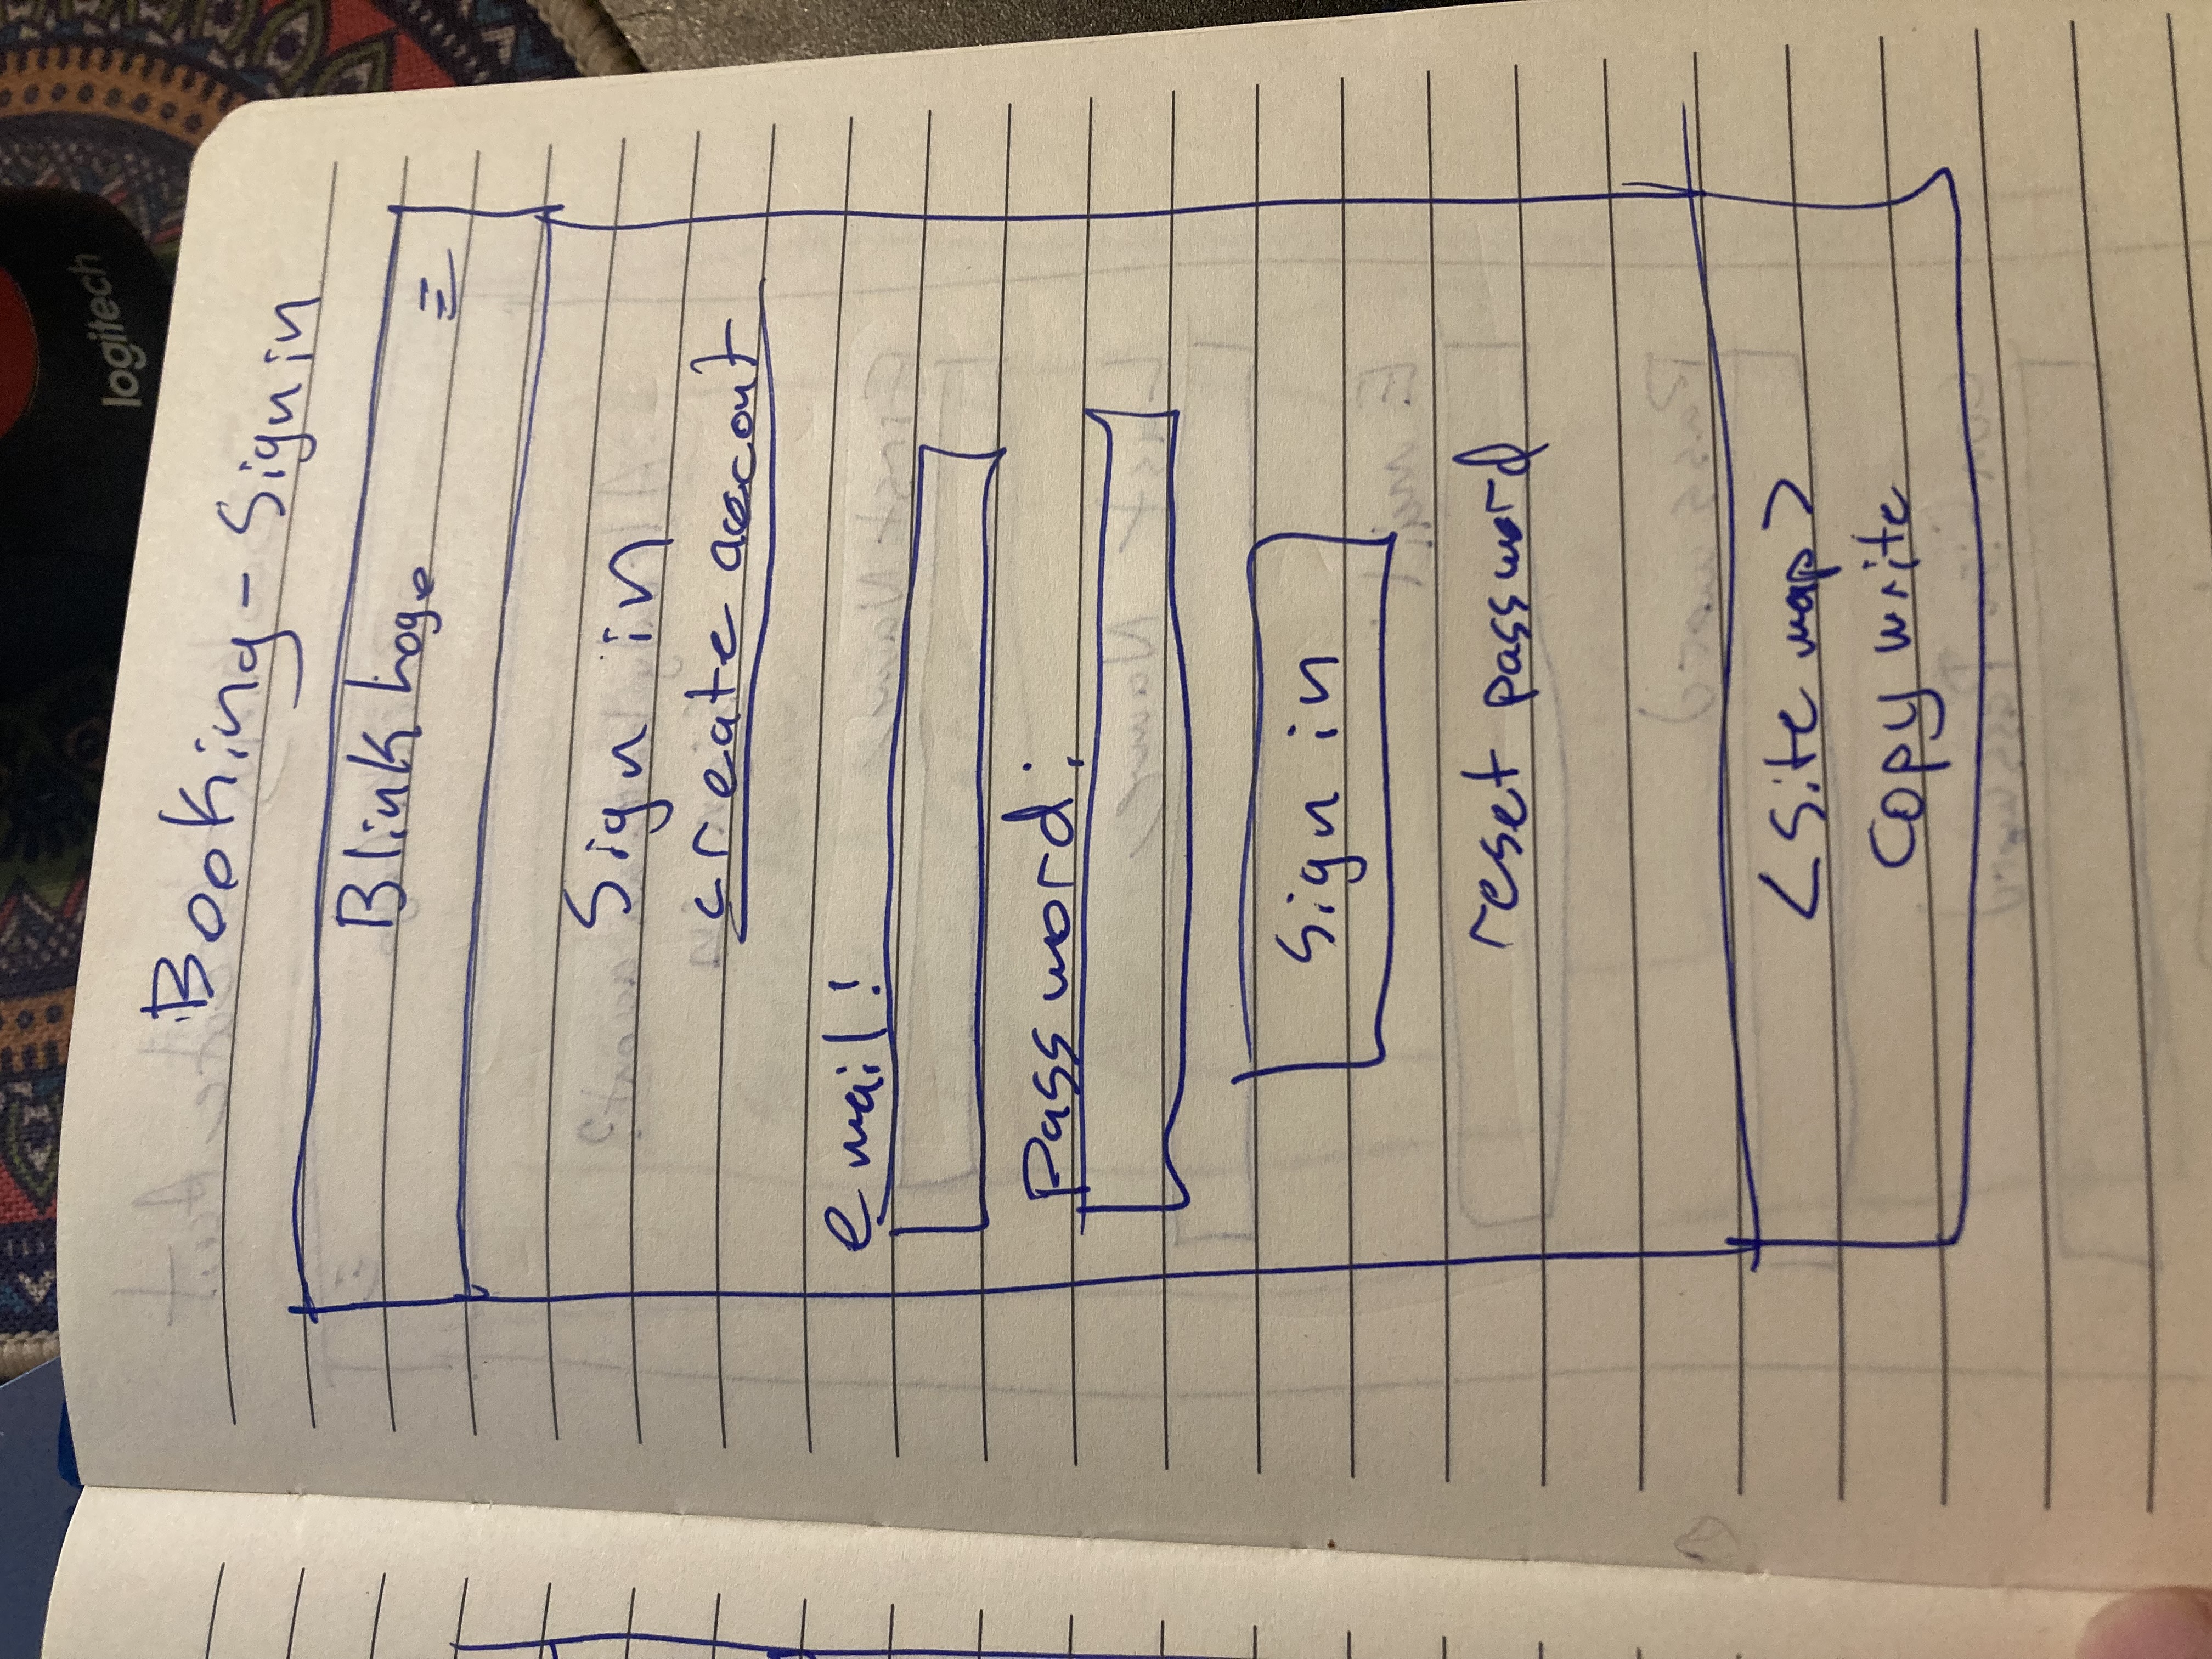 logitech
Booking - Sign in
Blink Logo
Sign in
create accout
email:
password:
sign in
reset password
<site map>
copy write